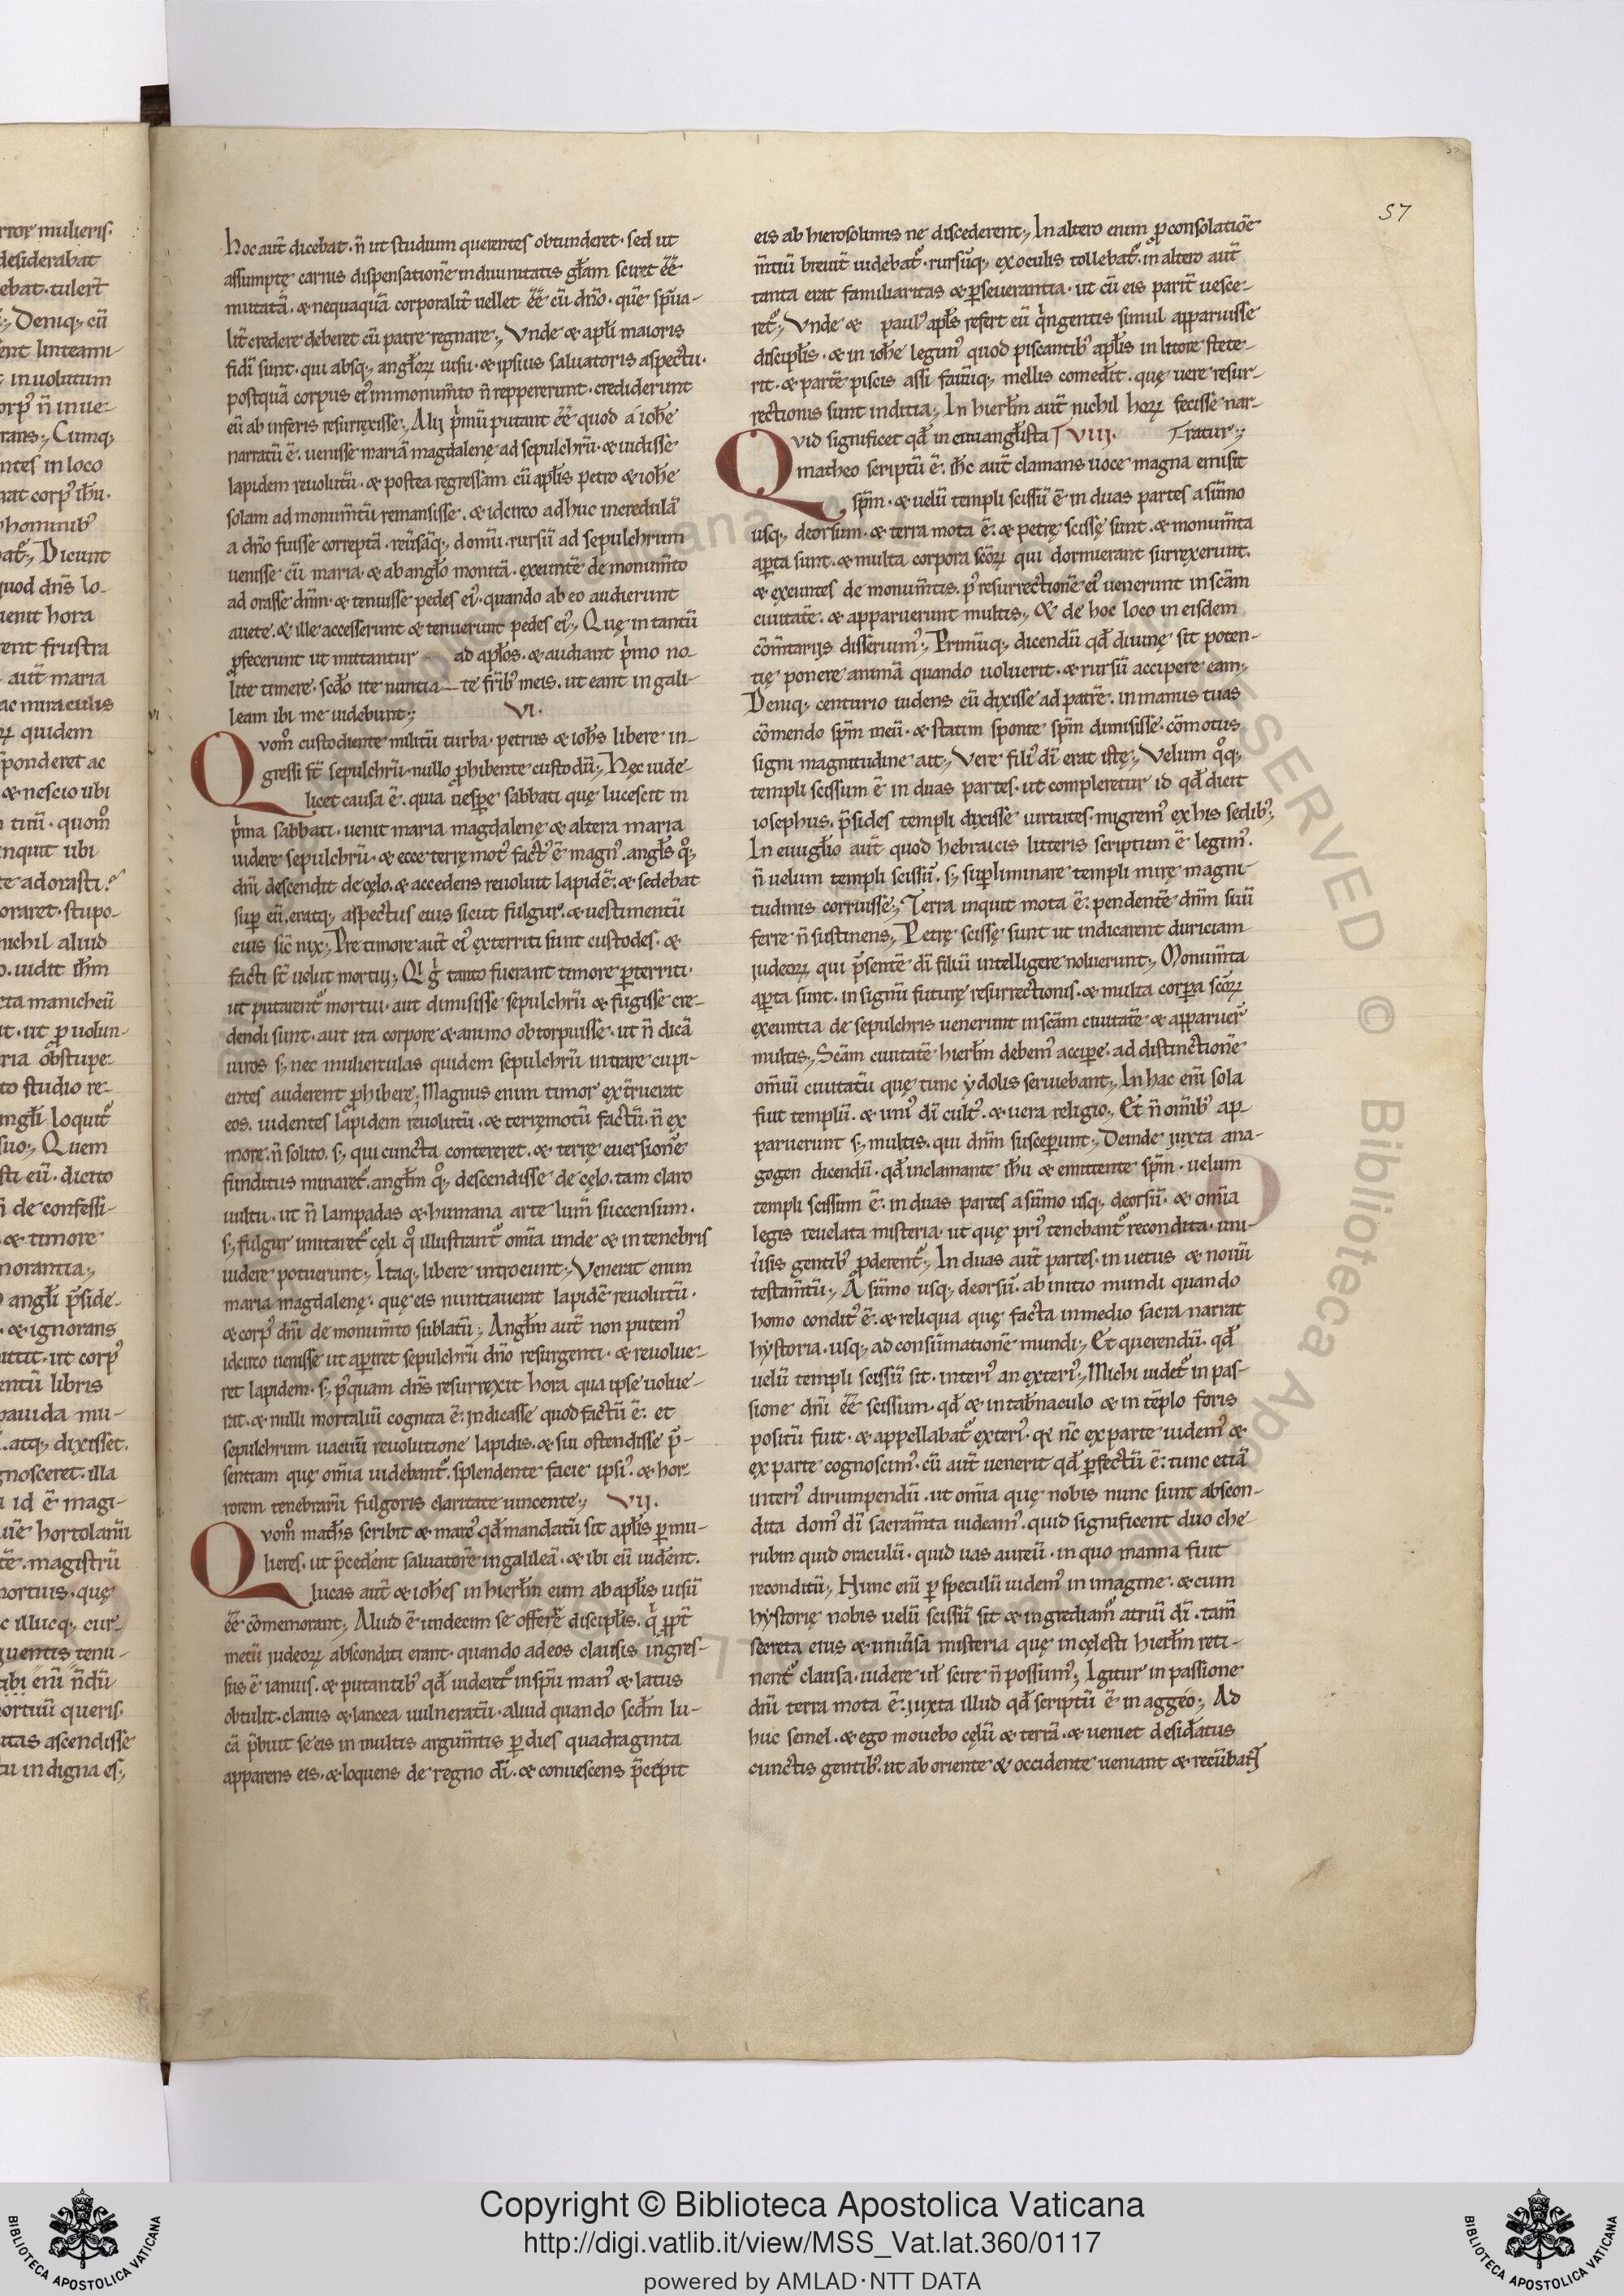 57
hoc aut̃ dicebat · ñ ut studium querentes obtunderet · sed ut
assumptę carnis dispensationẽ in diuinitatis gl̃am sciret eẽ
mutatã · & nequaquã corporalit̃ uellet eẽ cũ dño · quẽ spũa-
lit̃ credere deberet cũ patre regnare ; Vnde & apl̃i maioris
fidĩ sunt · qui absq; angl̃oꝝ uisu · & ipsius saluatoris aspectu ·
postquã corpus ei᾽ in monum̃to ñ reppererunt · crediderunt
eũ ab inferis resurrexisse ; Alij p̃mũ putant eẽ quod a ioh̃e
narratũ ẽ · uenisse mariã magdalenę ad sepulchrũ · & uidisse
lapidem reuolutũ · & postea regressam cũ apl̃is petro & ioh̃e
solam ad monum̃tũ remansisse · & idcirco adhuc incredulã
a dño fuisse correptã · reũsãq; domũ · rursũ ad sepulchrum
uenisse cũ maria · & ab angl̃o monitã · exeuntẽ de monum̃to
ad orasse dñm · & tenuisse pedes ei᾽ · quando ab eo audierunt
auete · & ille accesserunt & tenuerunt pedes ei᾽ ; Quę in tantũ
ꝓfecerunt ut mittantur ad apl̃os · & audiant p̃mo no-
lite timere · scd̃o ite nuntia-te fr̃ib᾽ meis · ut eant in gali-
leam ibi me uidebunt ; VI ·
Qvom̊ custodiente militũ turba · petrus & ioh̃s libere in-
gressi st̃ sepulchrũ · nullo ꝓhibente custodũ ; Hęc uide-
licet causa ẽ · quia uesꝑe sabbati quę lucescit in
p̃ma sabbati · uenit maria magdalenę & altera maria
uidere sepulchrũ · & ecce terręmot᾽ fact᾽ ẽ magn᾽ · angl̃s q̊;
dñi descendit de cęlo · & accedens reuoluit lapidẽ · & sedebat
suꝑ eũ · eratq; aspectus eius sicut fulgur · & uestimentũ
eius sic̃ nix ; Pre timore aut̃ ei᾽ exterriti sunt custodes · &
facti st̃ uelut mortuj ; Qi g̃ tanto fuerant timore ꝑterriti ·
ut putarent᷑ mortui · aut dimisisse sepulchrũ & fugisse cre-
dendi sunt · aut ita corpore & animo obtorpuisse · ut ñ dicã
uiros s; nec mulierculas quidem sepulchrũ intrare cupi-
entes auderent ꝓhibere ; Magnus enim timor ext̃ruerat
eos · uidentes lapidem reuolutũ · & terręmotũ factũ · ñ ex
more · ñ solito · s; qui cuncta contereret · & terrę euersionẽ
funditus minaret᷑ · angl̃m q̊; descendisse de cęlo · tam claro
uultu · ut ñ lampadas & humana arte lum̃ succensum ·
s; fulgur imitaret᷑ cęli q̊ illustrant᷑ om̃ia unde & in tenebris
uidere potuerunt ; Itaq; libere introeunt ; Venerat enim
maria magdalenę · quę eis nuntiauerat lapidẽ reuolutũ ·
& corp᾽ dñi de monum̃to sublatũ ; Angl̃m aut̃ non putem᾽
idcirco uenisse ut aꝑiret sepulchrũ dño resurgenti · & reuolue-
ret lapidem · s; p᾽quam dñs resurrexit hora qua ipse uolue-
rit · & nulli mortaliũ cognita ẽ · indicasse quod factũ ẽ · et
sepulchrum uacuũ reuolutione lapidis · & sui ostendisse p̃-
sentiam quę om̃ia uidebant᷑ · splendente facie ipsi᾽ · & hor-
rorem tenebrarũ fulgoris claritate uincente ; VII ·
Qvom̊ math̃s scribit & marc᾽ qd̃ mandatũ sit apl̃is ꝑ mu-
lieres · ut p̃ced̃ent saluatorẽ in galileã · & ibi eũ uid̃ent ·
lucas aut̃ & ioh̃es in hierl̃m eum ab apl̃is uisũ
eẽ cõmemorant ; Aliud ẽ undecim se offerrẽ discipl̃is · q̃ ꝓpt̃
metũ judeoꝝ absconditi erant · quando ad eos clausis ingres-
sus ẽ ianuis · & putantib᾽ qd̃ uideret᷑ in sp̃u man᾽ & latus
obtulit · clauis & lancea uulneratũ · aliud quando scd̃m lu-
cã p̃buit se eis in multis argum̃tis ꝑ dies quadraginta
apparens eis · & loquens de regno dĩ · & conuescens p̃cepit
eis ab hierosolimis ne discederent ; In altero enim ꝓ consolatiõe
m̃tiũ breuit̃ uidebat᷑ · rursũq; ex oculis tollebat᷑ · in altero aut̃
tanta erat familiaritas & ꝑseuerantia · ut cũ eis parit̃ uesce-
ret᷑ ; Vnde & paul᾽ apl̃s refert eũ q̃ngentis simul apparuisse
discipl̃is · & in ioh̃e legim᾽ quod piscantib᾽ apl̃is in litore stete-
rit · & partẽ piscis assi fauũq; mellis comed̃it · quę uere resur-
rectionis sunt inditia ; In hierl̃m aut̃ nichil hoꝝ fecisse nar-
Qvid significet qd̃ in euuangl̃ista VIII · tratur ;
matheo scriptũ ẽ · ih̃c aut̃ clamans uoce magna emisit
sp̃m · & uelũ templi scissũ ẽ in duas partes a sũmo
usq; deorsum · & terra mota ẽ · & petrę scissę sunt · & monum̃ta
aꝑta sunt · & multa corpora sc̃oꝝ qui dormierant surrexerunt ·
& exeuntes de monum̃tis · p᾽ resurrectionẽ ei᾽ uenerunt in sc̃am
ciuitatẽ · & apparuerunt multis ; & de hoc loco in eisdem
cõm̃tarijs disseruim᾽ ; Primũq; dicendũ qd̃ diuinę sit poten-
tię ponere animã quando uoluerit · & rursũ accipere eam ;
Deniq; centurio uidens eũ dixisse ad patrẽ · in manus tuas
cõmendo sp̃m meũ · & statim sponte sp̃m dimisisse · cõmotus
signi magnitudine ait ; Vere fili᾽ dĩ erat iste ; Velum q̊q;
templi scissum ẽ in duas partes · ut compleretur id qd̃ dicit
iosephus · p̃sides templi dixisse uirtutes · migrem᾽ ex his sedib᾽ ;
In euugl̃io aut̃ quod hebraicis litteris scriptum ẽ legim᾽ ·
ñ uelum templi scissũ · s; suꝑliminare templi mirę magni
tudinis corruisse ; Terra inquit mota ẽ · pendentẽ dñm suũ
ferre ñ sustinens ; Petrę scissę sunt ut indicarent duriciam
judeoꝝ qui p̃sentẽ dĩ filiũ intelligere noluerunt ; Monum̃ta
aꝑta sunt · in signũ futurę resurrectionis · & multa corꝑa sc̃oꝝ
exeuntia de sepulchris uenerunt in sc̃am ciuitatẽ & apparuer̃
multis ; Sc̃am ciuitatẽ hierl̃m debem᾽ acciꝑe · ad distinctionẽ
om̃iũ ciuitatũ quę tunc ydolis seruiebant ; In hac em̃ sola
fuit templũ · & uni᾽ dĩ cult᾽ · & uera religio ; Et ñ om̃ib᾽ ap-
paruerunt s; multis · qui dñm susceꝑunt ; Deinde juxta ana-
gogen dicendũ · qd̃ inclamante ih̃u & emittente sp̃m · uelum
templi scissum ẽ · in duas partes a sũmo usq; deorsũ · & om̃ia
legis reuelata misteria · ut quę pri᾽ tenebant᷑ recondita · uni-
ũsis gentib᾽ ꝓderent᷑ ; In duas aut̃ partes · in uetus & nouũ
testam̃tũ ; A sũmo usq; deorsũ · ab initio mundi quando
homo condit᾽ ẽ · & reliqua quę facta in medio sacra narrat
hystoria · usq; ad consũmationẽ mundi ; Et querendũ · qd̃
uelũ templi scissũ sit · interi᾽ an exteri᾽ ; Michi uidet᷑ in pas-
sione dñi eẽ scissum · qd̃ & in tab̃naculo & in tẽplo foris
positũ fuit · & appellabat᷑ exteri᾽ · qi nc̃ ex parte uidem᾽ &
ex parte cognoscim᾽ · cũ aut̃ uenerit qd̃ ꝑfectũ ẽ · tunc etiã
interi᾽ dirumpendũ · ut om̃ia quę nobis nunc sunt abscon-
dita dom᾽ dĩ sacram̃ta uideam᾽ · quid significent duo che
rubin quid oraculũ · quid uas aureũ · in quo manna fuit
reconditũ ; Hunc em̃ ꝑ speculũ uidem᾽ in imagine · & cum
hystorię nobis uelũ scissũ sit & ingrediam᷑ atriũ dĩ · tam̃
secreta eius & uniũsa misteria quę in cęlesti hierl̃m reti-
nent᷑ clausa · uidere ul̃ scire ñ possum᾽ ; Igitur in passione
dñi terra mota ẽ · juxta illud qd̃ scriptũ ẽ in aggeo ; Ad
huc semel · & ego mouebo cęlũ & terrã · & ueniet desid̃atus
cunctis gentib᾽ · ut ab oriente & occidente ueniant & recũbant
Copyright © Biblioteca Apostolica Vaticana
http://digi.vatlib.it/view/MSS_Vat.lat.360/0117
powered by AMLAD·NTT DATA
BIBLIOTECA APOSTOLICA VATICANA
BIBLIOTECA APOSTOLICA VATICANA